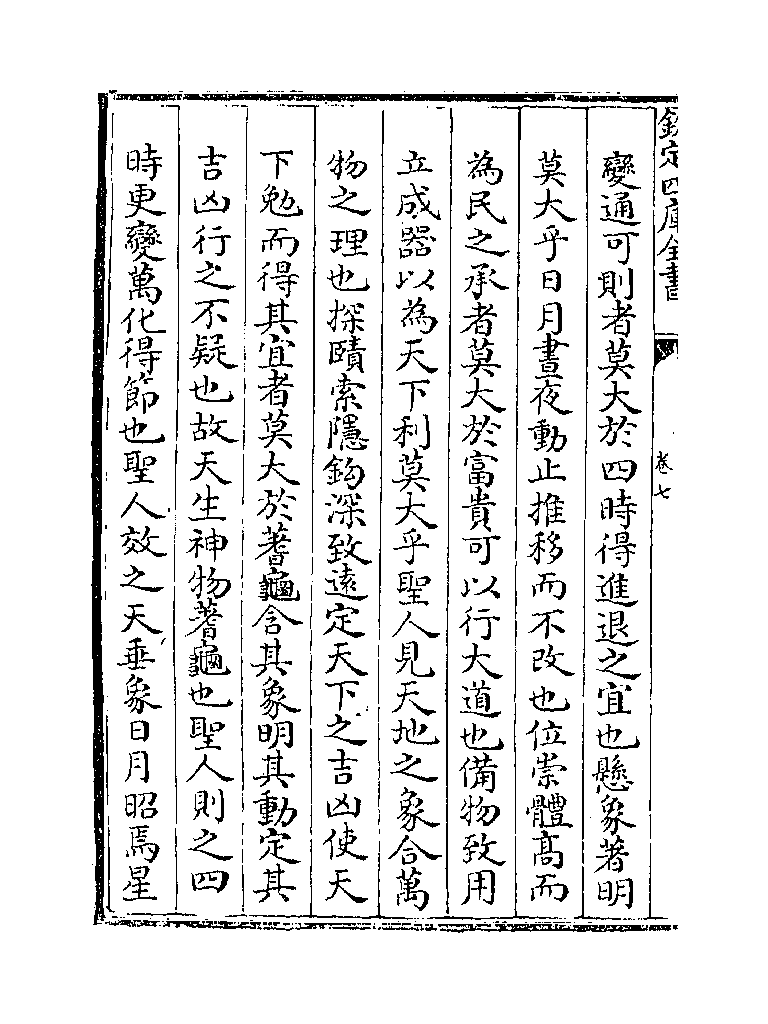 欽定四庫全書
卷七
變通可則者莫大於四時得進退之宜也懸象著明
莫大乎日月晝夜動止推移而不改也位崇體髙而
為民之承者莫大於富貴可以行大道也備物致用
立成器以為天下利莫大乎聖人見天地之象合萬
物之理也探賾索隱鈎深致遠定天下之吉凶使天
下勉而得其宜者莫大於蓍龜含其象明其動定其
吉凶行之不疑也故天生神物蓍龜也聖人則之四
時更變萬化得節也聖人效之天垂象日月昭焉星